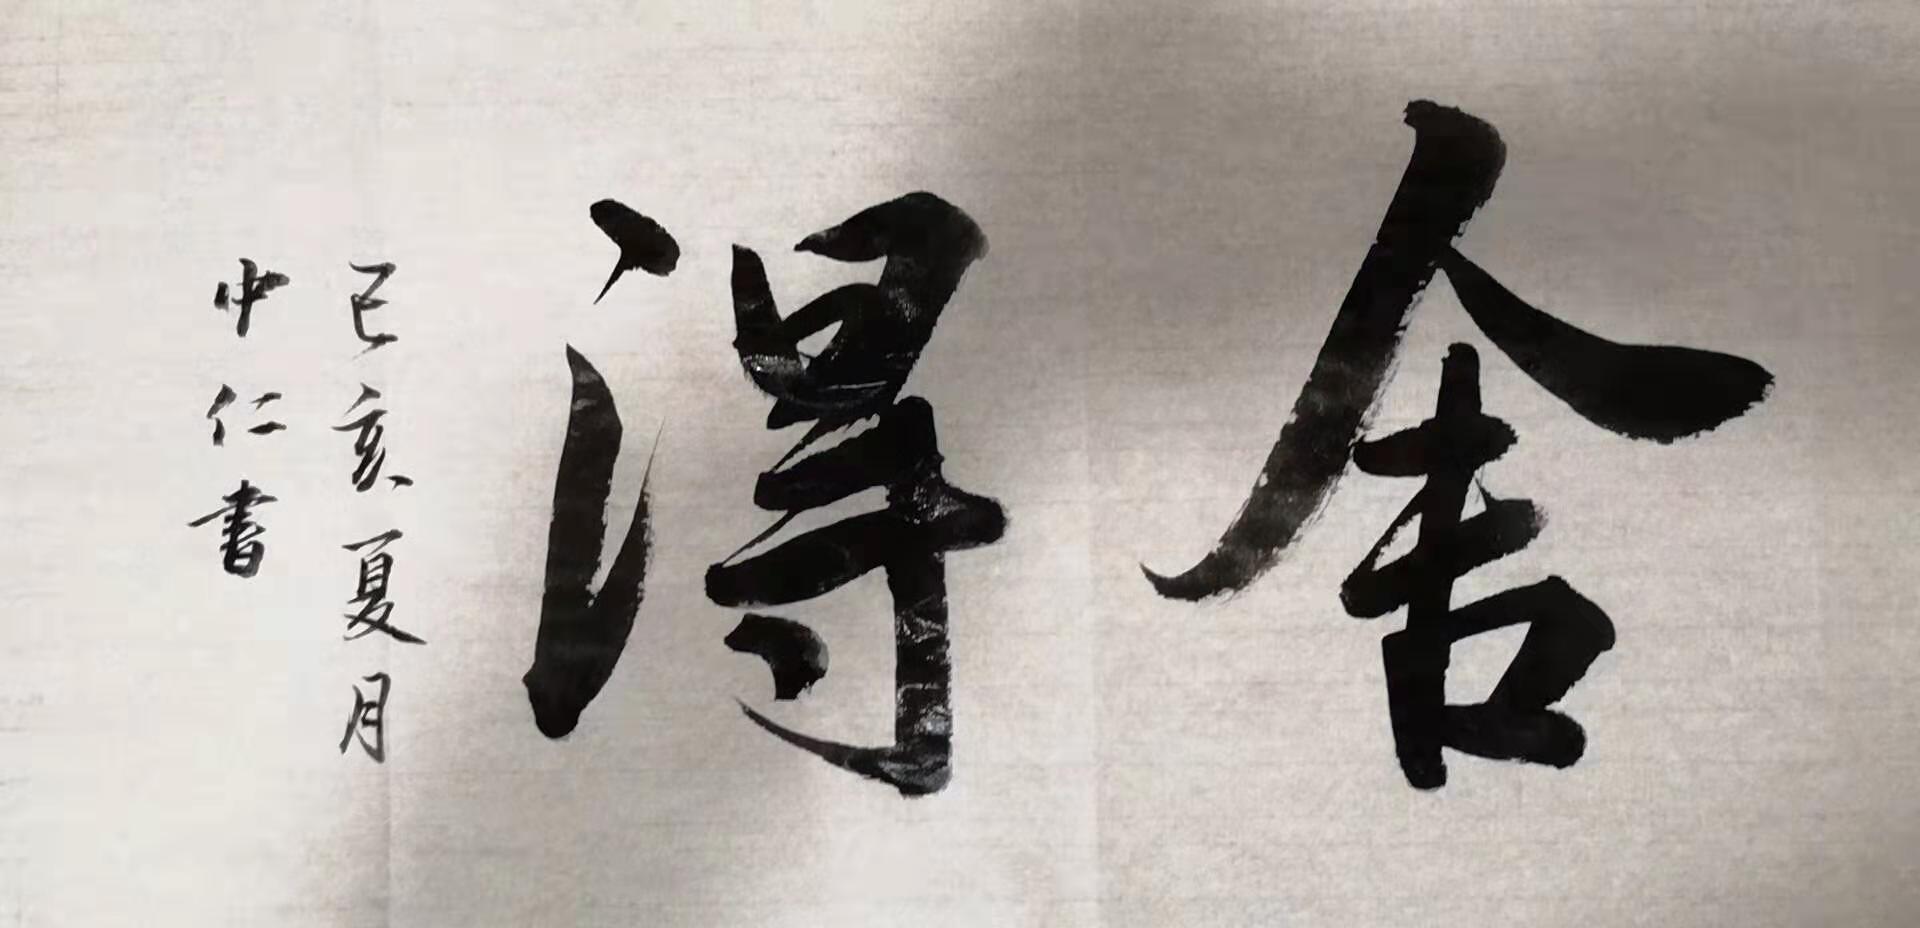 舍得
己亥夏月
中仁書